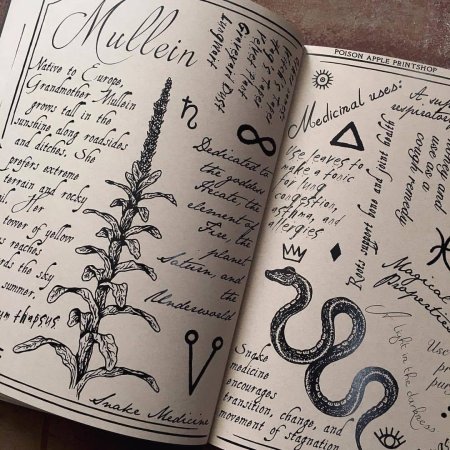 Mullein
Native to Europe,
Grandmother Mullein
grows tall in the
sunshine along roadsides
and ditches. She
prefers extreme
terrain and rocky
Her
tower of yellow
reaches
the sky
summer.
thapsus
Snake Medicine
Dedicated to
the goddess
Hecate, the
element of
Fire, the
planet
Saturn, and
the
Underworld
POISON APPLE PRINTSHOP
Medicinal uses:
Use leaves to
make a tonic
for lung
congestion,
asthma, and
allergies
Roots support bone and joint health
respiratory
honey and
use as a
cough remedy
Magical
Properties
A light in the darkness
Use
Snake
medicine
encourages
transition, change, and
movement of stagnation